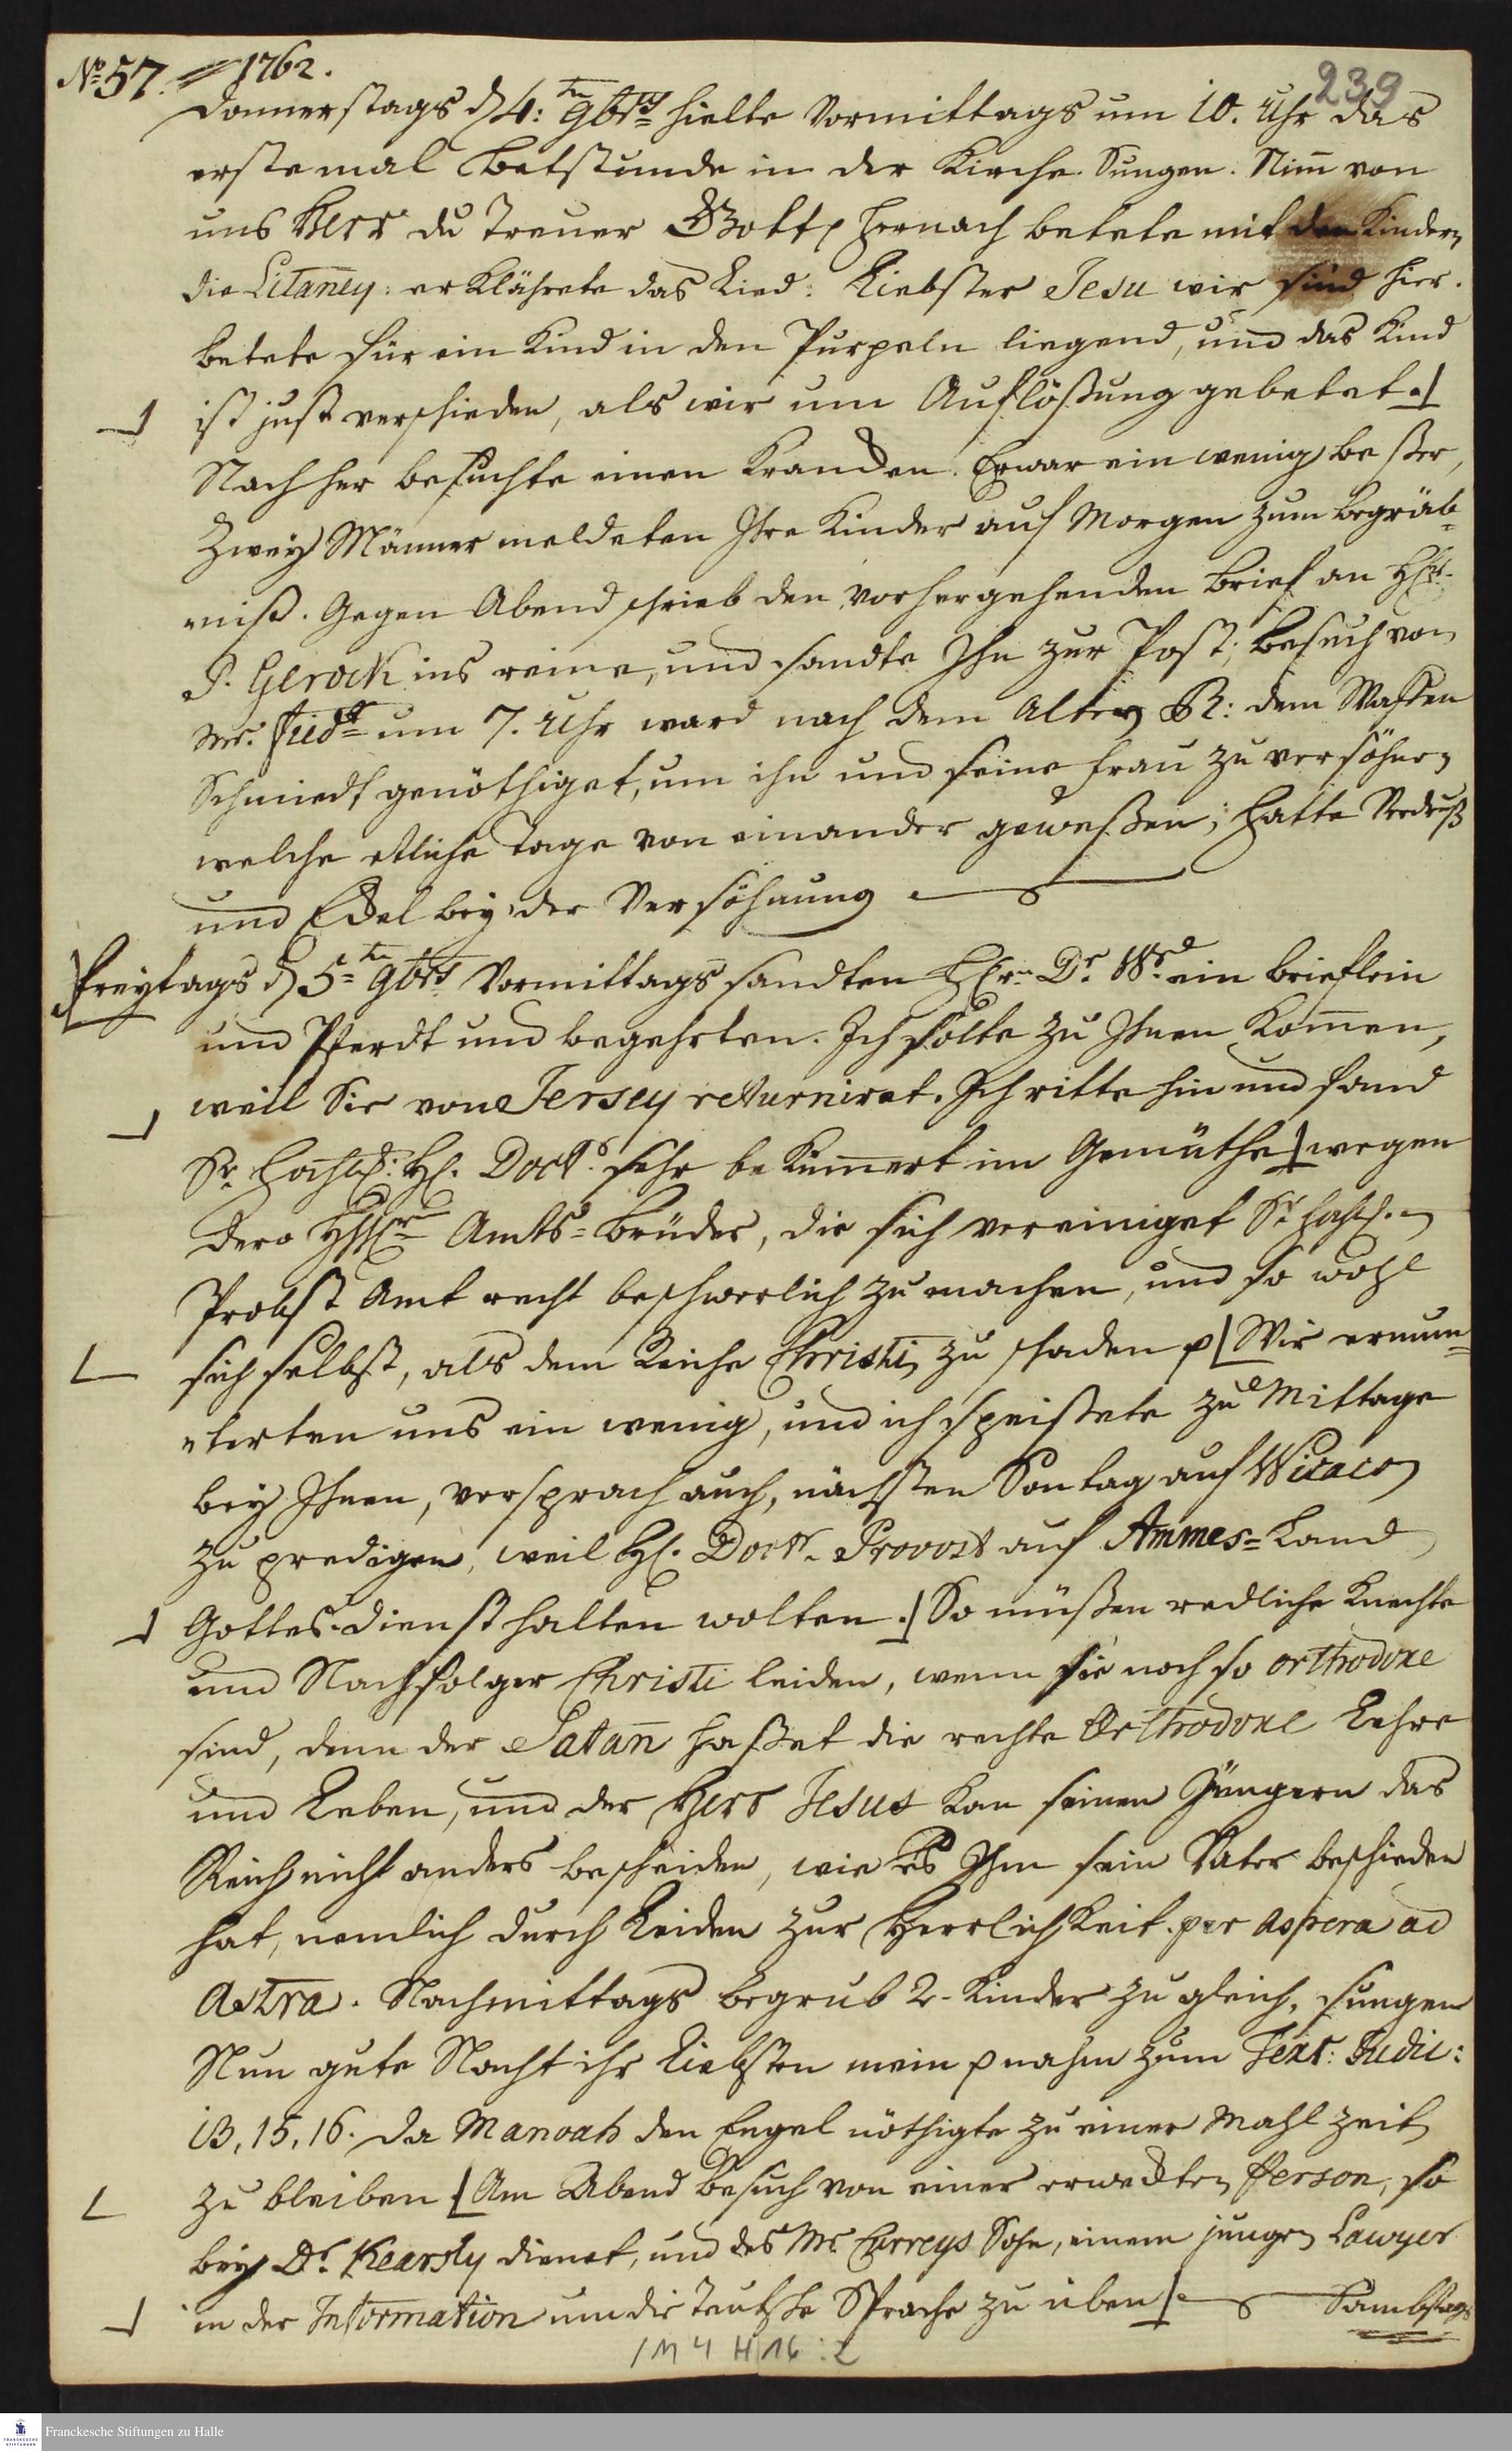 No. 57. 1762.
239
Donnerstags d 4:ten 9brs hielte Vormittags um 10. Uhr das
erste mal Betstunde in der Kirche. Sungen. Nim̄ von
uns Herr du Treuer Gott p hernach betete mit den Kindern
die Litaney: erklährete das Lied: Liebster Jesu wir sind hier.
betete für ein Kind in den Purpeln liegend, und das Kind
ist just verschieden, als wir um Auflößung gebetet.
Nachher besuchte einen Krancken. Er war ein wenig beßer,
Zwey Männer meldeten Ihre Kinder auf Morgen zum begräb-
niß. Gegen Abend schrieb den vorhergehenden brief an HErrn
P. Gerock ins reine, und sandte Ihn zur Post; Besuch von
Mr. um 7. Uhr ward nach dem Alten R: dem Waffen
Schmiedt genöthiget, um ihn und seine frau zu versöhnen
welche etliche Tage von einander geweßen; hatte Verdruß
und Eckel bey der Versöhnung
freytags d 5ten 9brs Vormittags sandten HErr Dr. Wr. ein brieflein
und Pferdt und begehrten. Ich solte zu Ihnen kom̄en,
weill Sie von Jersey returniret. Ich ritte hin und fand
Sr. Hochw: H. Doct.s sehr bekum̄ert im Gemüthe wegen
dero HErrn Amts-Brüder, die sich vereiniget Sr Hochw.
Probst Amt recht beschwerlich zu machen, und so wohl
sich selbst, als dem Reiche Christi, zu schaden p Wir ermun-
terten uns ein wenig, und ich speißete zu Mittage
bey Ihnen, versprach auch, nächsten Sontag auf Wicaco
zu predigen, weil H. Doctr. Provost auf Ammes-Land
Gottes-dienst halten wolten. So müßen redliche Knechte
und Nachfolger Christi leiden, wenn sie noch so orthodoxe
sind, denn der Satan̄ haßet die rechte Orthodoxe Lehre
und Leben, und der Herr Jesus kan seinen Jüngern das
Reich nicht anders bescheiden, wie es Ihm sein Vater beschieden
hat, nemlich durch Leiden zur Herrlichkeit. per aspera ad
Astra. Nachmittags begrub 2. Kinder zu gleich, sungen
Nun gute Nacht ihr Liebsten mein p nahm zum Text: Judic:
13, 15, 16. da Manoah den Engel nöthigte zu einer Mahlzeit
zu bleiben Am Abend Besuch von einer erweckten Person, so
bey Dr. Kearsly dienet, und des Mr. Curreys Sohn, einem jungen Lawyer
in der Information um die Teutsche Sprache zu üben.
Sambstags
1 M 4 H 16 : 2
Franckesche Stiftungen zu Halle